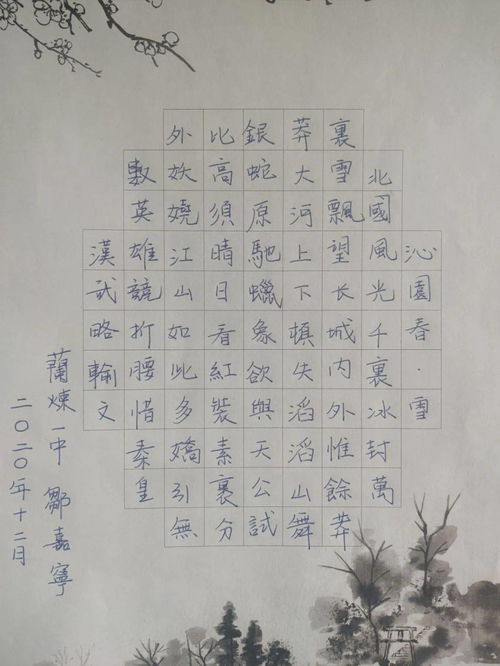 沁園春·雪
北國風光千裏冰封萬
裏雪飄望长城内外惟餘莽
莽大河上下頓失滔滔山舞
銀蛇原馳蠟象欲與天公試
比高須晴日看紅裝素裹分
外妖嬈江山如此多嬌引無
數英雄競折腰惜秦皇
漢武略輸文
蘭煉一中 鄒嘉寧
二〇二〇年十二月